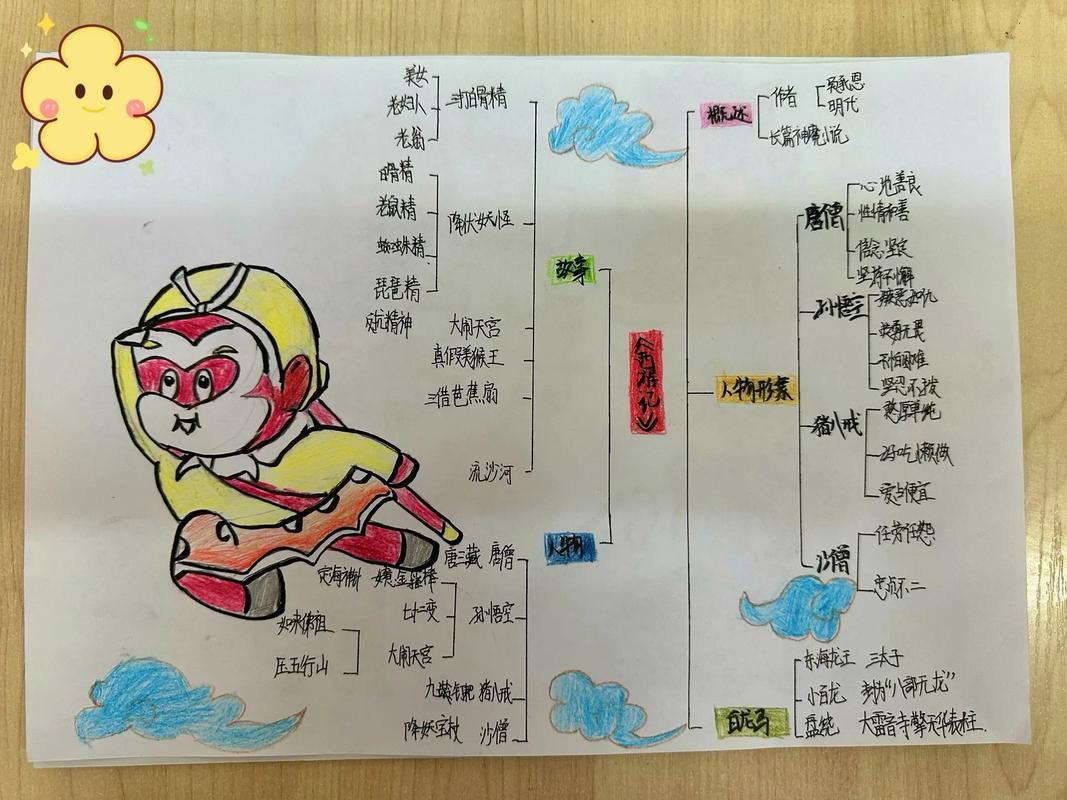 《西游记》
概述
作者
吴承恩
明代
长篇神魔小说
人物形象
唐僧
心地善良
性情和善
信念坚定
坚持不懈
孙悟空
疾恶如仇
英勇无畏
不怕困难
坚忍不拔
猪八戒
憨厚单纯
好吃懒做
爱占便宜
沙僧
任劳任怨
忠贞不二
白龙马
东海龙王 三太子
小白龙 封为"八部天龙"
盘绕 大雷音寺擎天华表柱
故事
三打白骨精
美女
老妇人
老翁
降伏妖怪
白骨精
老鼠精
蜘蛛精
琵琶精
大闹天宫
反抗精神
真假美猴王
三借芭蕉扇
流沙河
人物
唐三藏 唐僧
孙悟空
定海神针 如意金箍棒
七十二变
大闹天宫
如来佛祖
压五行山
九齿钉耙 猪八戒
降妖宝杖 沙僧